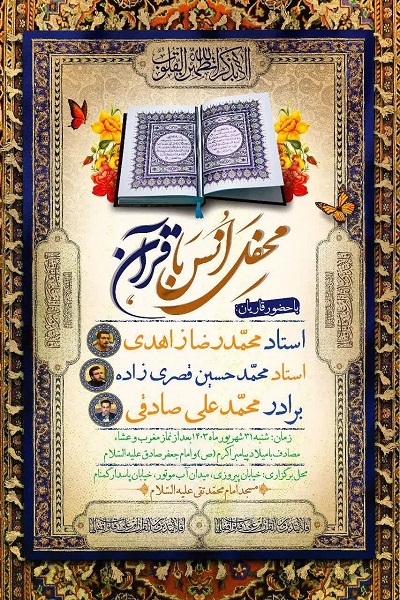 الا بذکر الله تطمئن القلوب
محفل اُنس با قرآن
با حضور قاریان:
استاد محمدرضا زاهدی
استاد محمّد حسین قصری زاده
برادر محمّد علی صادقی
زمان: شنبه ۳۱ شهریور ماه ۱۴۰۳ بعد از نماز مغرب و عشاء
مصادف با میلاد پیامبر اکرم (ص) و امام جعفر صادق علیه السلام
محل برگزاری: خیابان پیروزی، میدان آب موتور، خیابان پاسدار گمنام
مسجد امام محمّد تقی علیه السّلام